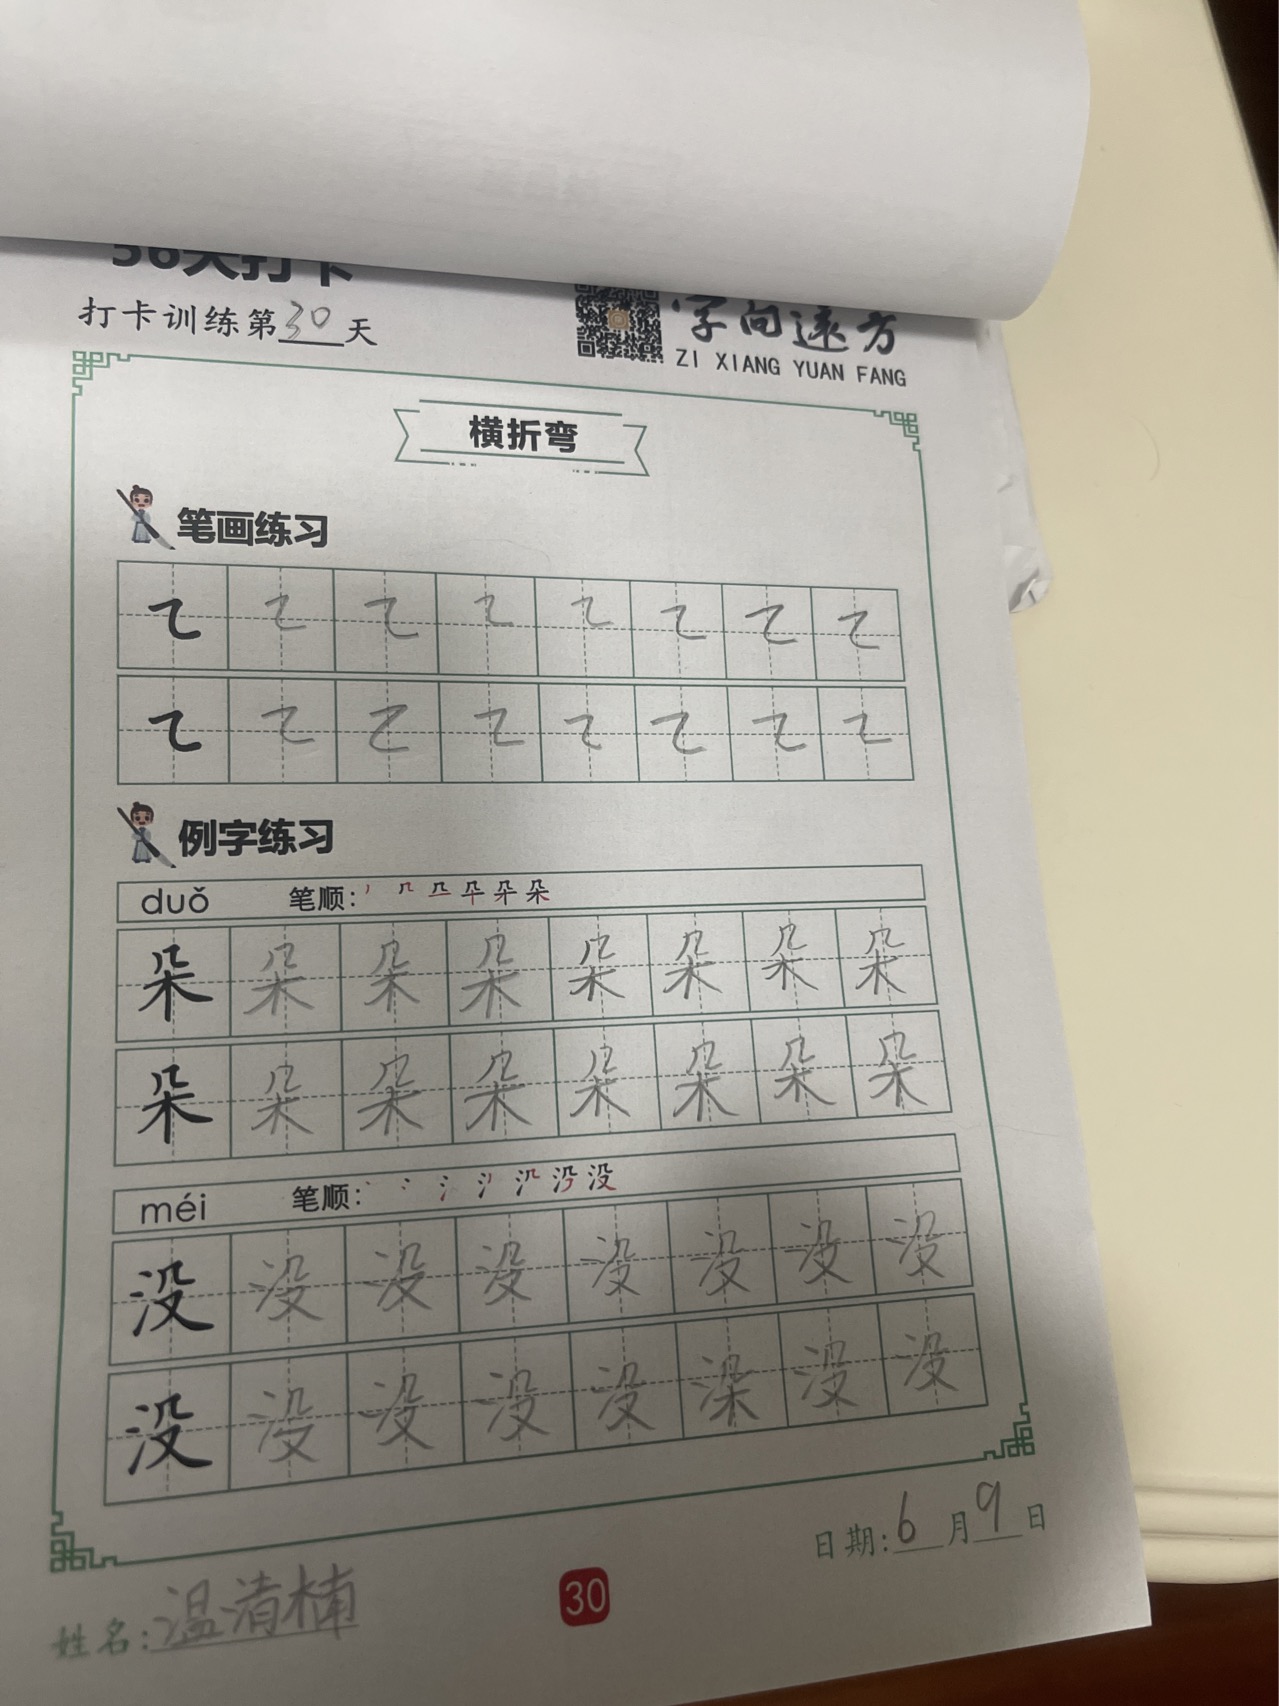 56天打卡
打卡训练第30天
字向远方
ZI XIANG YUAN FANG
横折弯
笔画练习
㇍ ㇍ ㇍ ㇍ ㇍ ㇍ ㇍ ㇍
㇍ ㇍ ㇍ ㇍ ㇍ ㇍ ㇍ ㇍
例字练习
duǒ 笔顺: 朵
朵 朵 朵 朵 朵 朵 朵 朵
朵 朵 朵 朵 朵 朵 朵 朵
méi 笔顺: 没
没 没 没 没 没 没 没 没
没 没 没 没 没 没 没
日期:6月9日
姓名:温清楠
30